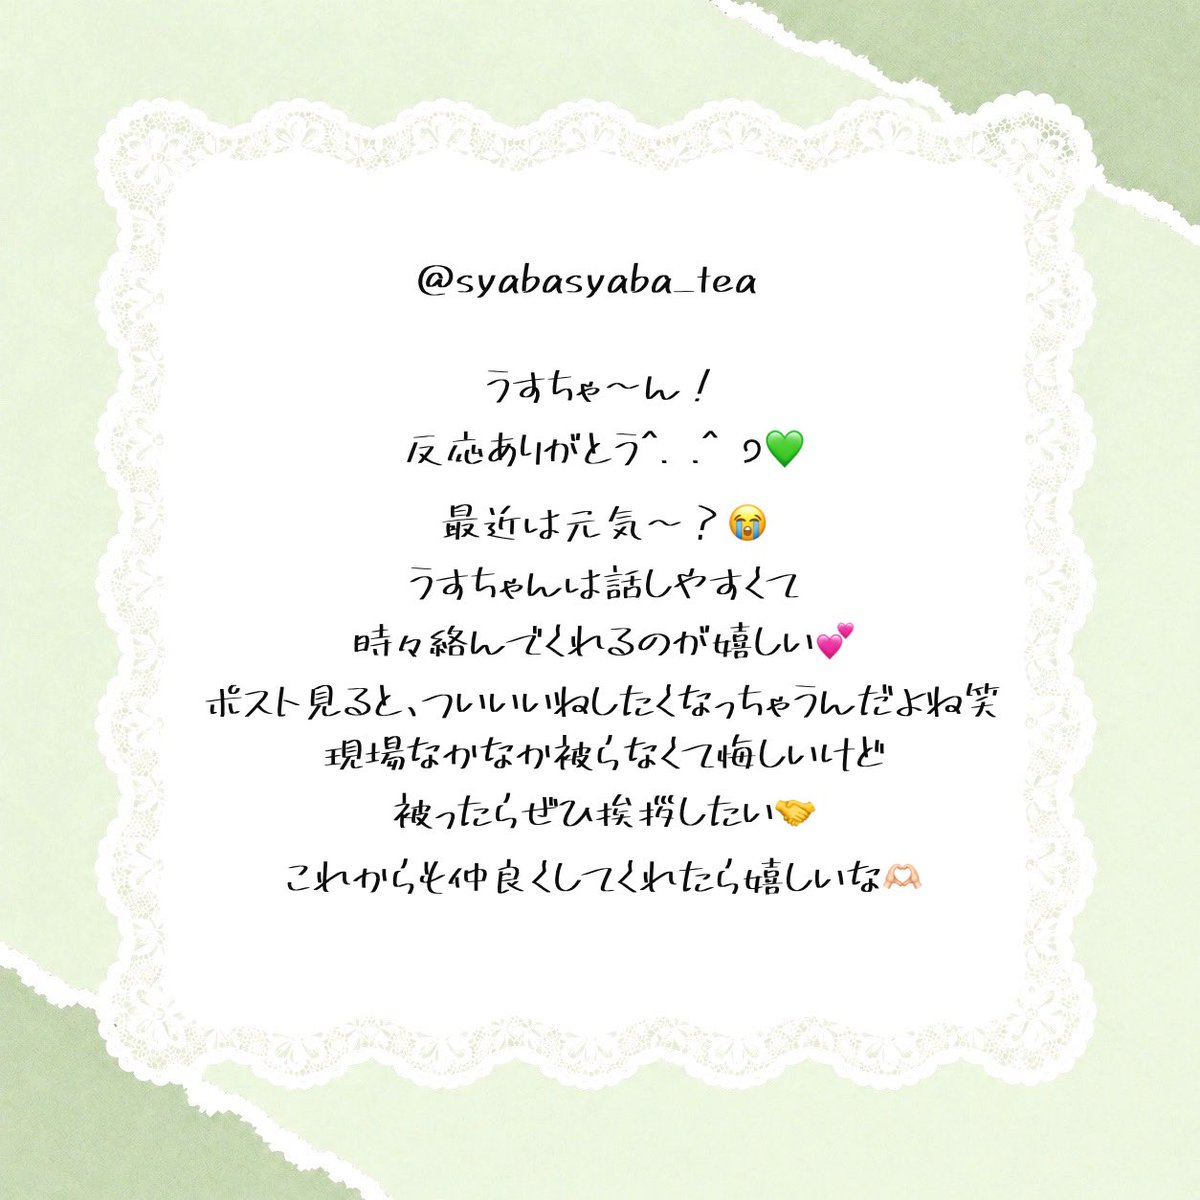 @syabasyaba_tea
うすちゃ〜ん！
反応ありがとう^. .^ ੭💚
最近は元気〜？😭
うすちゃんは話しやすくて
時々絡んでくれるのが嬉しい💕
ポスト見ると、ついいいねしたくなっちゃうんだよね笑
現場なかなか被らなくて悔しいけど
被ったらぜひ挨拶したい🤝
これからも仲良くしてくれたら嬉しいな🫶🏻